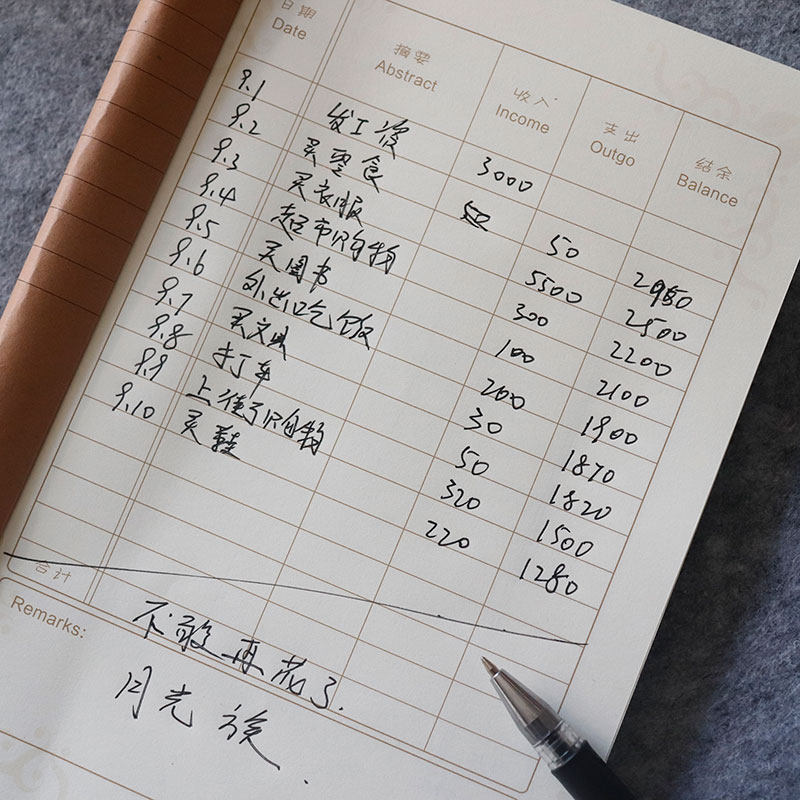 日期 摘要 收入 支出 结余
Date Abstract Income Outgo Balance
9.1 发工资 3000
9.2 买零食 50 2950
9.3 买衣服 5500 2500
9.4 超市购物 300 2200
9.5 买图书 100 2100
9.6 外出吃饭 200 1900
9.7 买文具 30 1870
9.8 打车 50 1820
9.9 上街购物 320 1500
9.10 买鞋 220 1280
合计
Remarks:
不敢再花了.
月光族.